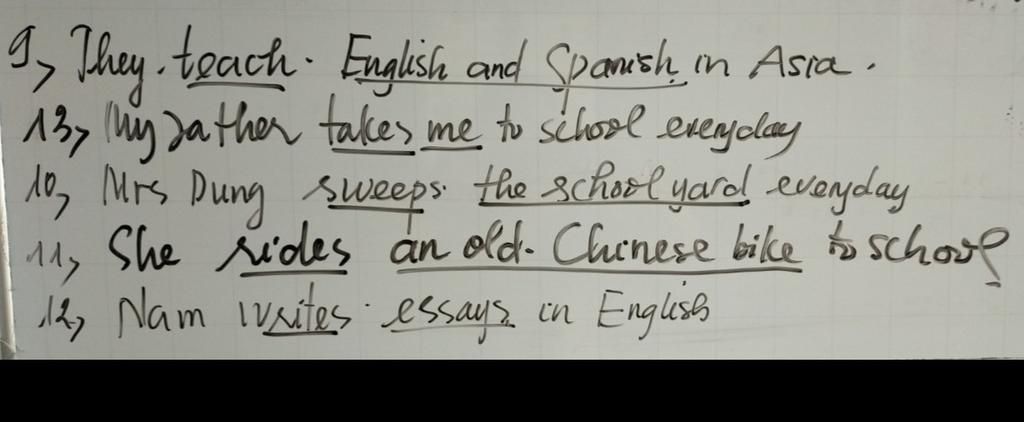 9, They teach. English and Spanish in Asia.
13, My father takes me to school everyday
10, Mrs Dung sweeps. the school yard everyday
11, She rides an old. Chinese bike to school
12, Nam writes essays in English